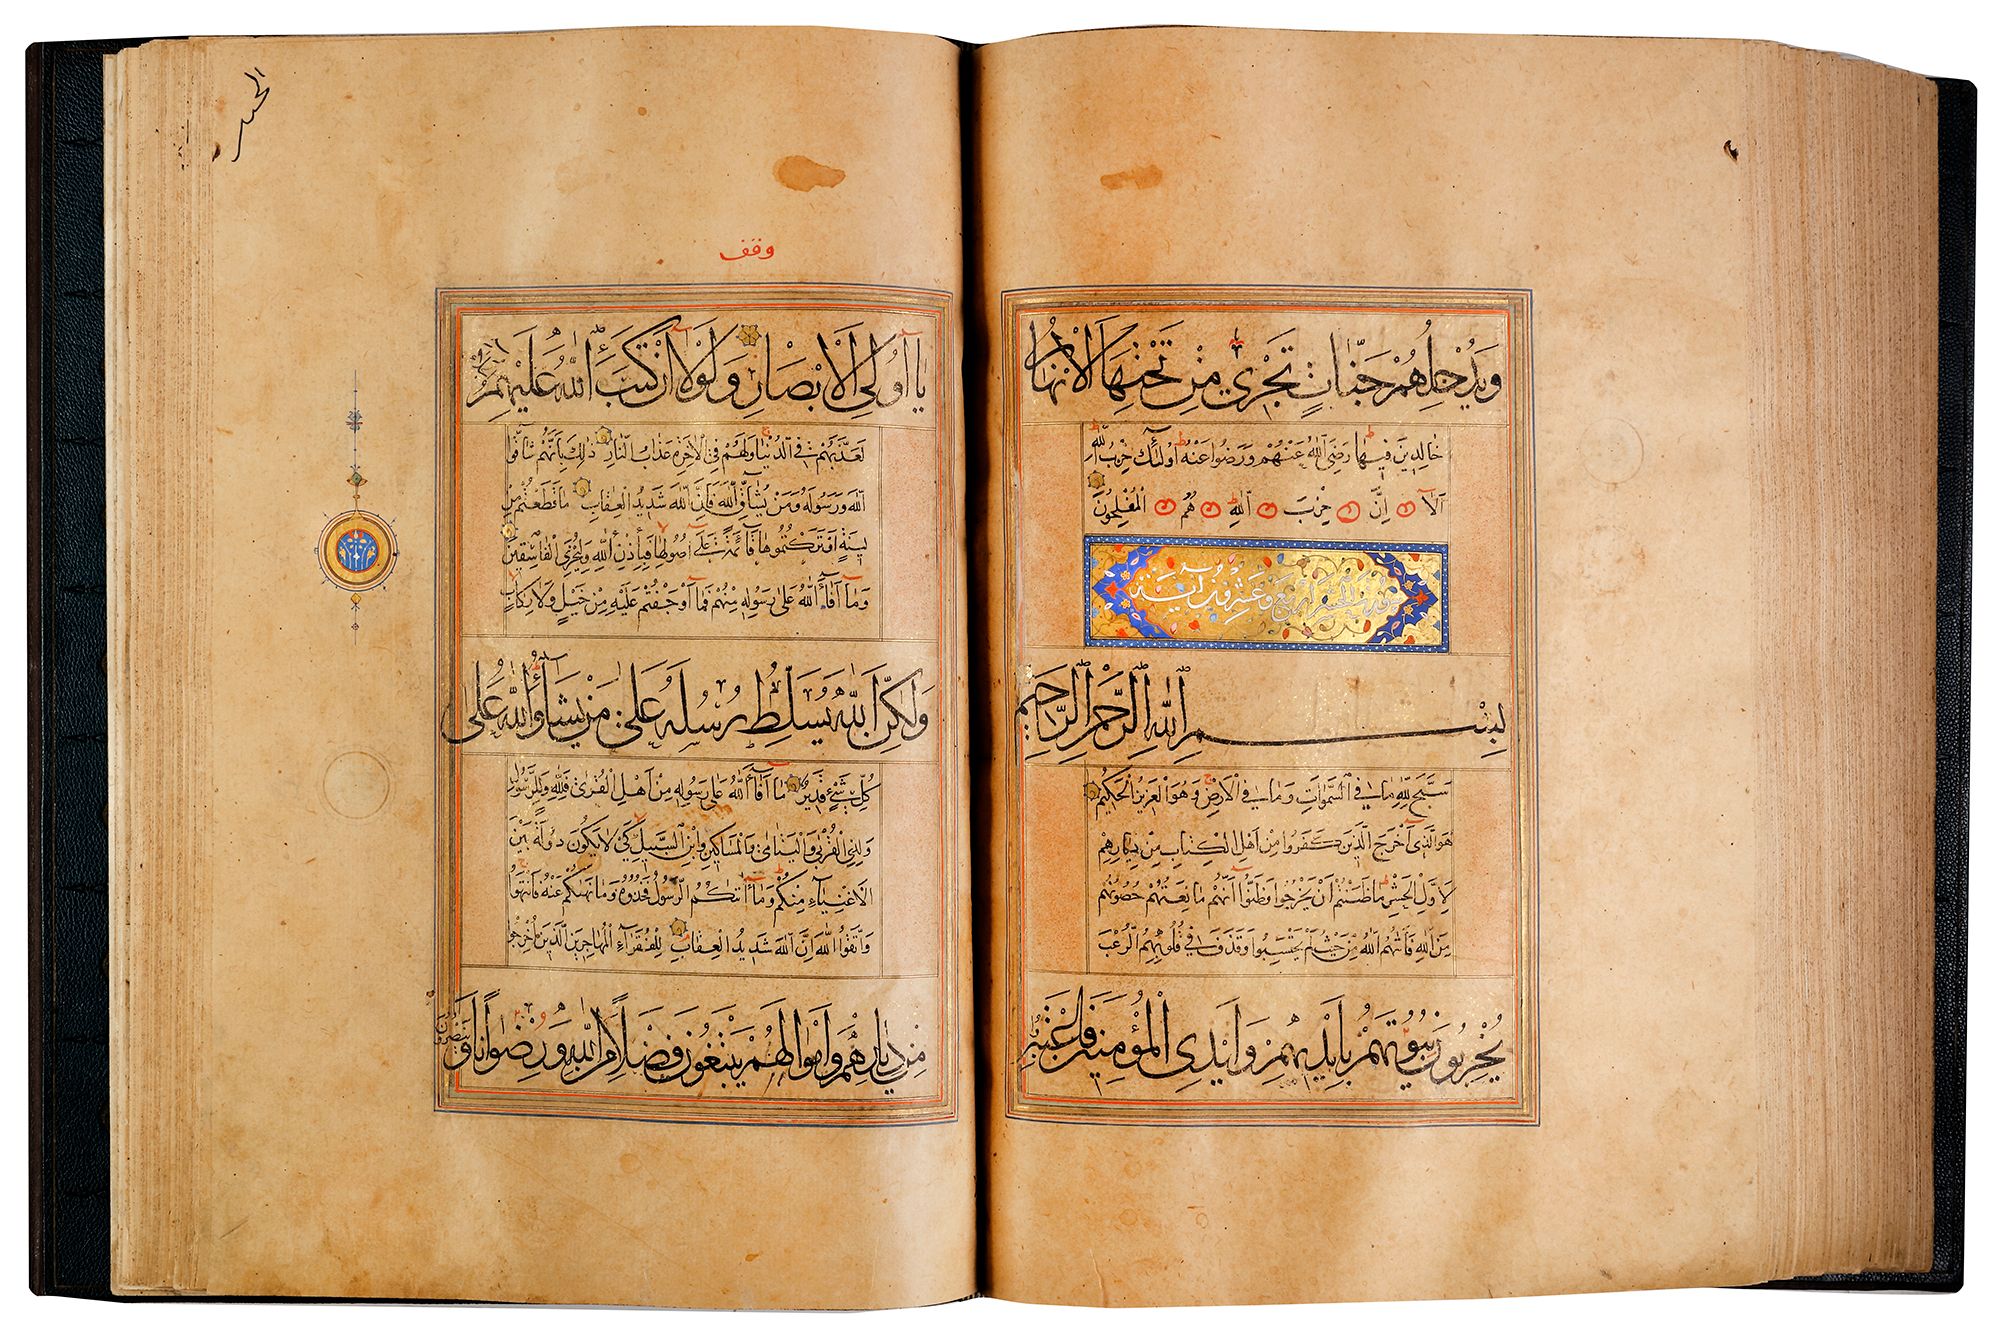 وَيُدْخِلُهُمْ جَنَّاتٍ تَجْرِي مِنْ تَحْتِهَا الْأَنْهَارُ
خَالِدِينَ فِيهَا رَضِيَ اللَّهُ عَنْهُمْ وَرَضُوا عَنْهُ أُولَٰئِكَ حِزْبُ اللَّهِ
أَلَا إِنَّ حِزْبَ اللَّهِ هُمُ الْمُفْلِحُونَ
سورة الحشر اربع وعشرون آية
بِسْمِ اللَّهِ الرَّحْمَٰنِ الرَّحِيمِ
سَبَّحَ لِلَّهِ مَا فِي السَّمَوَاتِ وَمَا فِي الْأَرْضِ وَهُوَ الْعَزِيزُ الْحَكِيمُ
هُوَ الَّذِي أَخْرَجَ الَّذِينَ كَفَرُوا مِنْ أَهْلِ الْكِتَابِ مِنْ دِيَارِهِمْ
لِأَوَّلِ الْحَشْرِ مَا ظَنَنْتُمْ أَنْ يَخْرُجُوا وَظَنُّوا أَنَّهُمْ مَانِعَتُهُمْ حُصُونُهُمْ
مِنَ اللَّهِ فَأَتَاهُمُ اللَّهُ مِنْ حَيْثُ لَمْ يَحْتَسِبُوا وَقَذَفَ فِي قُلُوبِهِمُ الرُّعْبَ
يُخْرِبُونَ بُيُوتَهُمْ بِأَيْدِيهِمْ وَأَيْدِي الْمُؤْمِنِينَ فَاعْتَبِرُوا
وقف
يَا أُولِي الْأَبْصَارِ وَلَوْلَا أَنْ كَتَبَ اللَّهُ عَلَيْهِمُ الْجَلَاءَ
لَعَذَّبَهُمْ فِي الدُّنْيَا وَلَهُمْ فِي الْآخِرَةِ عَذَابُ النَّارِ ذَٰلِكَ بِأَنَّهُمْ شَاقُّوا
اللَّهَ وَرَسُولَهُ وَمَنْ يُشَاقِّ اللَّهَ فَإِنَّ اللَّهَ شَدِيدُ الْعِقَابِ مَا قَطَعْتُمْ مِنْ
لِينَةٍ أَوْ تَرَكْتُمُوهَا قَائِمَةً عَلَىٰ أُصُولِهَا فَبِإِذْنِ اللَّهِ وَلِيُخْزِيَ الْفَاسِقِينَ
وَمَا أَفَاءَ اللَّهُ عَلَىٰ رَسُولِهِ مِنْهُمْ فَمَا أَوْجَفْتُمْ عَلَيْهِ مِنْ خَيْلٍ وَلَا رِكَابٍ
وَلَٰكِنَّ اللَّهَ يُسَلِّطُ رُسُلَهُ عَلَىٰ مَنْ يَشَاءُ وَاللَّهُ عَلَىٰ
كُلِّ شَيْءٍ قَدِيرٌ مَا أَفَاءَ اللَّهُ عَلَىٰ رَسُولِهِ مِنْ أَهْلِ الْقُرَىٰ فَلِلَّهِ وَلِلرَّسُولِ
وَلِذِي الْقُرْبَىٰ وَالْيَتَامَىٰ وَالْمَسَاكِينِ وَابْنِ السَّبِيلِ كَيْ لَا يَكُونَ دُولَةً بَيْنَ
الْأَغْنِيَاءِ مِنْكُمْ وَمَا آتَاكُمُ الرَّسُولُ فَخُذُوهُ وَمَا نَهَاكُمْ عَنْهُ فَانْتَهُوا
وَاتَّقُوا اللَّهَ إِنَّ اللَّهَ شَدِيدُ الْعِقَابِ لِلْفُقَرَاءِ الْمُهَاجِرِينَ الَّذِينَ أُخْرِجُوا
مِنْ دِيَارِهِمْ وَأَمْوَالِهِمْ يَبْتَغُونَ فَضْلًا مِنَ اللَّهِ وَرِضْوَانًا وَيَنْصُرُونَ